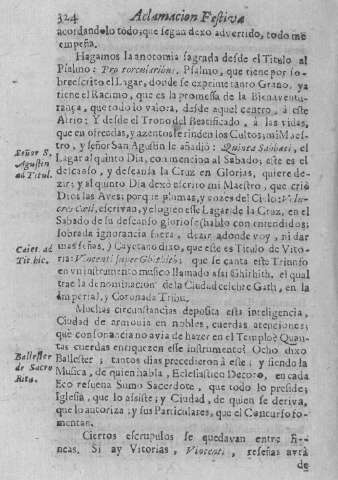 324 Aclamacion Festiva
acordandolo todo; que segun dexo advertido, todo me
empeña.
Hagamos la anotomia sagrada desde el Titulo al
Psalmo: Pro torcularibus. Psalmo, que tiene por so-
breescrito el Lagar, donde se exprime tanto Grano, ya
tiene el Racimo, que es la promessa de la Bienaventu-
rança, que todo lo valora, desde aquel centro, à este
Atrio; Y desde el Trono del Beatificado, à las vidas,
que en ofrendas, y azentos le rinden los Cultos; mi Maes-
tro, y señor San Agustin le añadiò: Quinta Sabbati, el
Señor S.
Agustin
ad Titul.
Lagar al quinto Dia, con mencion al Sabado; este es el
descanso, y descansa la Cruz en Glorias, quiere de-
zir; y al quinto Dia dexò escrito mi Maestro, que criò
Dios las Aves: porque plumas, y vozes del Cielo: Volu-
cres Cœli, escrivan, y elogien esse Lagar de la Cruz, en el
Sabado de su descanso glorioso (hablo con entendidos;
sobrada ignorancia fuera, dezir adonde voy, ni dar
mas señas,) Cayetano dixo, que este es Titulo de Vito-
Caiet. ad
Tit hic.
ria: Vincenti super Ghithith; que se canta este Triunfo
en vn instrumento musico llamado assi Ghithith, el qual
trae la denominacion de la Ciudad celebre Gath, en la
imperial, y Coronada Tribu.
Muchas circunstancias deposita esta inteligencia,
Ciudad de armonia en nobles, cuerdas atenciones;
que consonancia no avia de hazer en el Templo? Quan-
tas cuerdas enriquezen esse instrumento? Ocho dixo
Ballester
de Sacro
Bito.
Ballester; tantos dias precedieron à este; y siendo la
Musica, de quien habla, Eclesiastico Decoro, en cada
Eco resuena Sumo Sacerdote, que todo lo preside;
Iglesia, que lo assiste; y Ciudad, de quien se deriva,
que lo autoriza; y sus Particulares, que el Concurso fo-
mentan.
Ciertos escrupulos se quedavan entre li-
neas. Si ay Vitorias, Vincenti, reseñas avrà
de